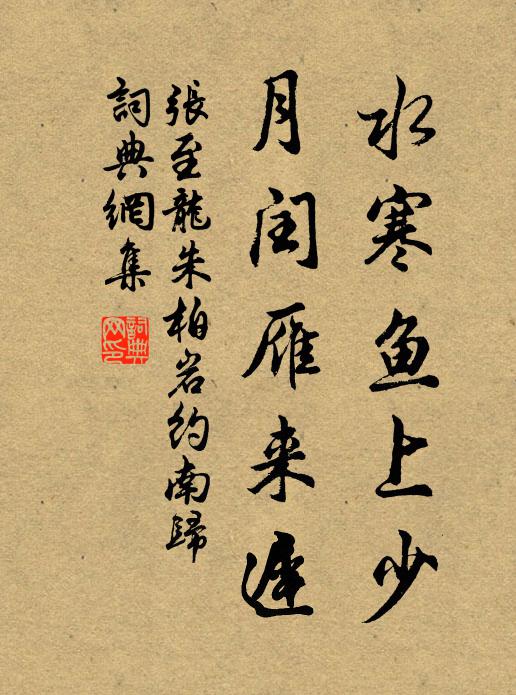 水寒鱼上少
月闰雁来遲
張至龍朱柏岩約南歸
詞典網集
詞典
网印